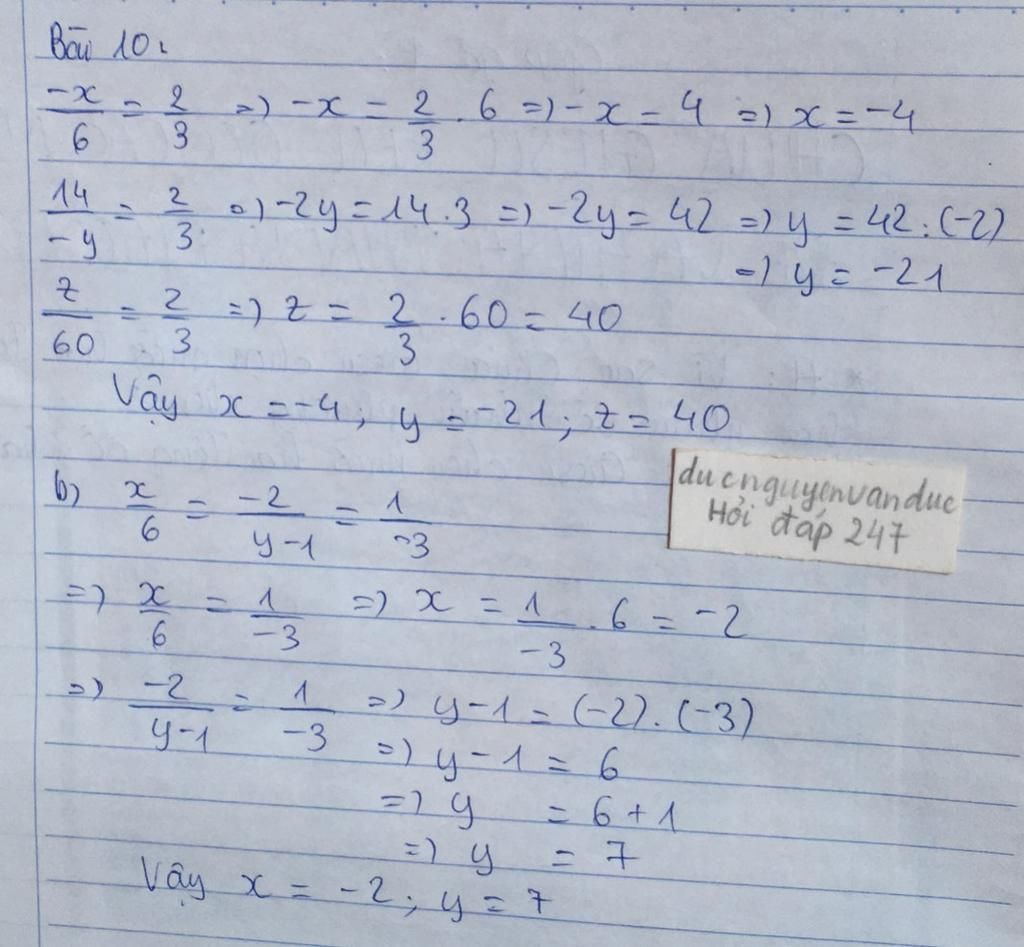 Bài 10:
-x/6 = 2/3 => -x = 2/3 . 6 => -x = 4 => x = -4
14/-y = 2/3 => -2y = 14.3 => -2y = 42 => y = 42:(-2)
=> y = -21
z/60 = 2/3 => z = 2/3 . 60 = 40
Vậy x = -4; y = -21; z = 40
b) x/6 = -2/y-1 = 1/-3
ducnguyenvanduc
Hỏi đáp 247
=> x/6 = 1/-3 => x = 1/-3 . 6 = -2
=> -2/y-1 = 1/-3 => y-1 = (-2).(-3)
=> y-1 = 6
=> y = 6+1
=> y = 7
Vậy x = -2; y = 7